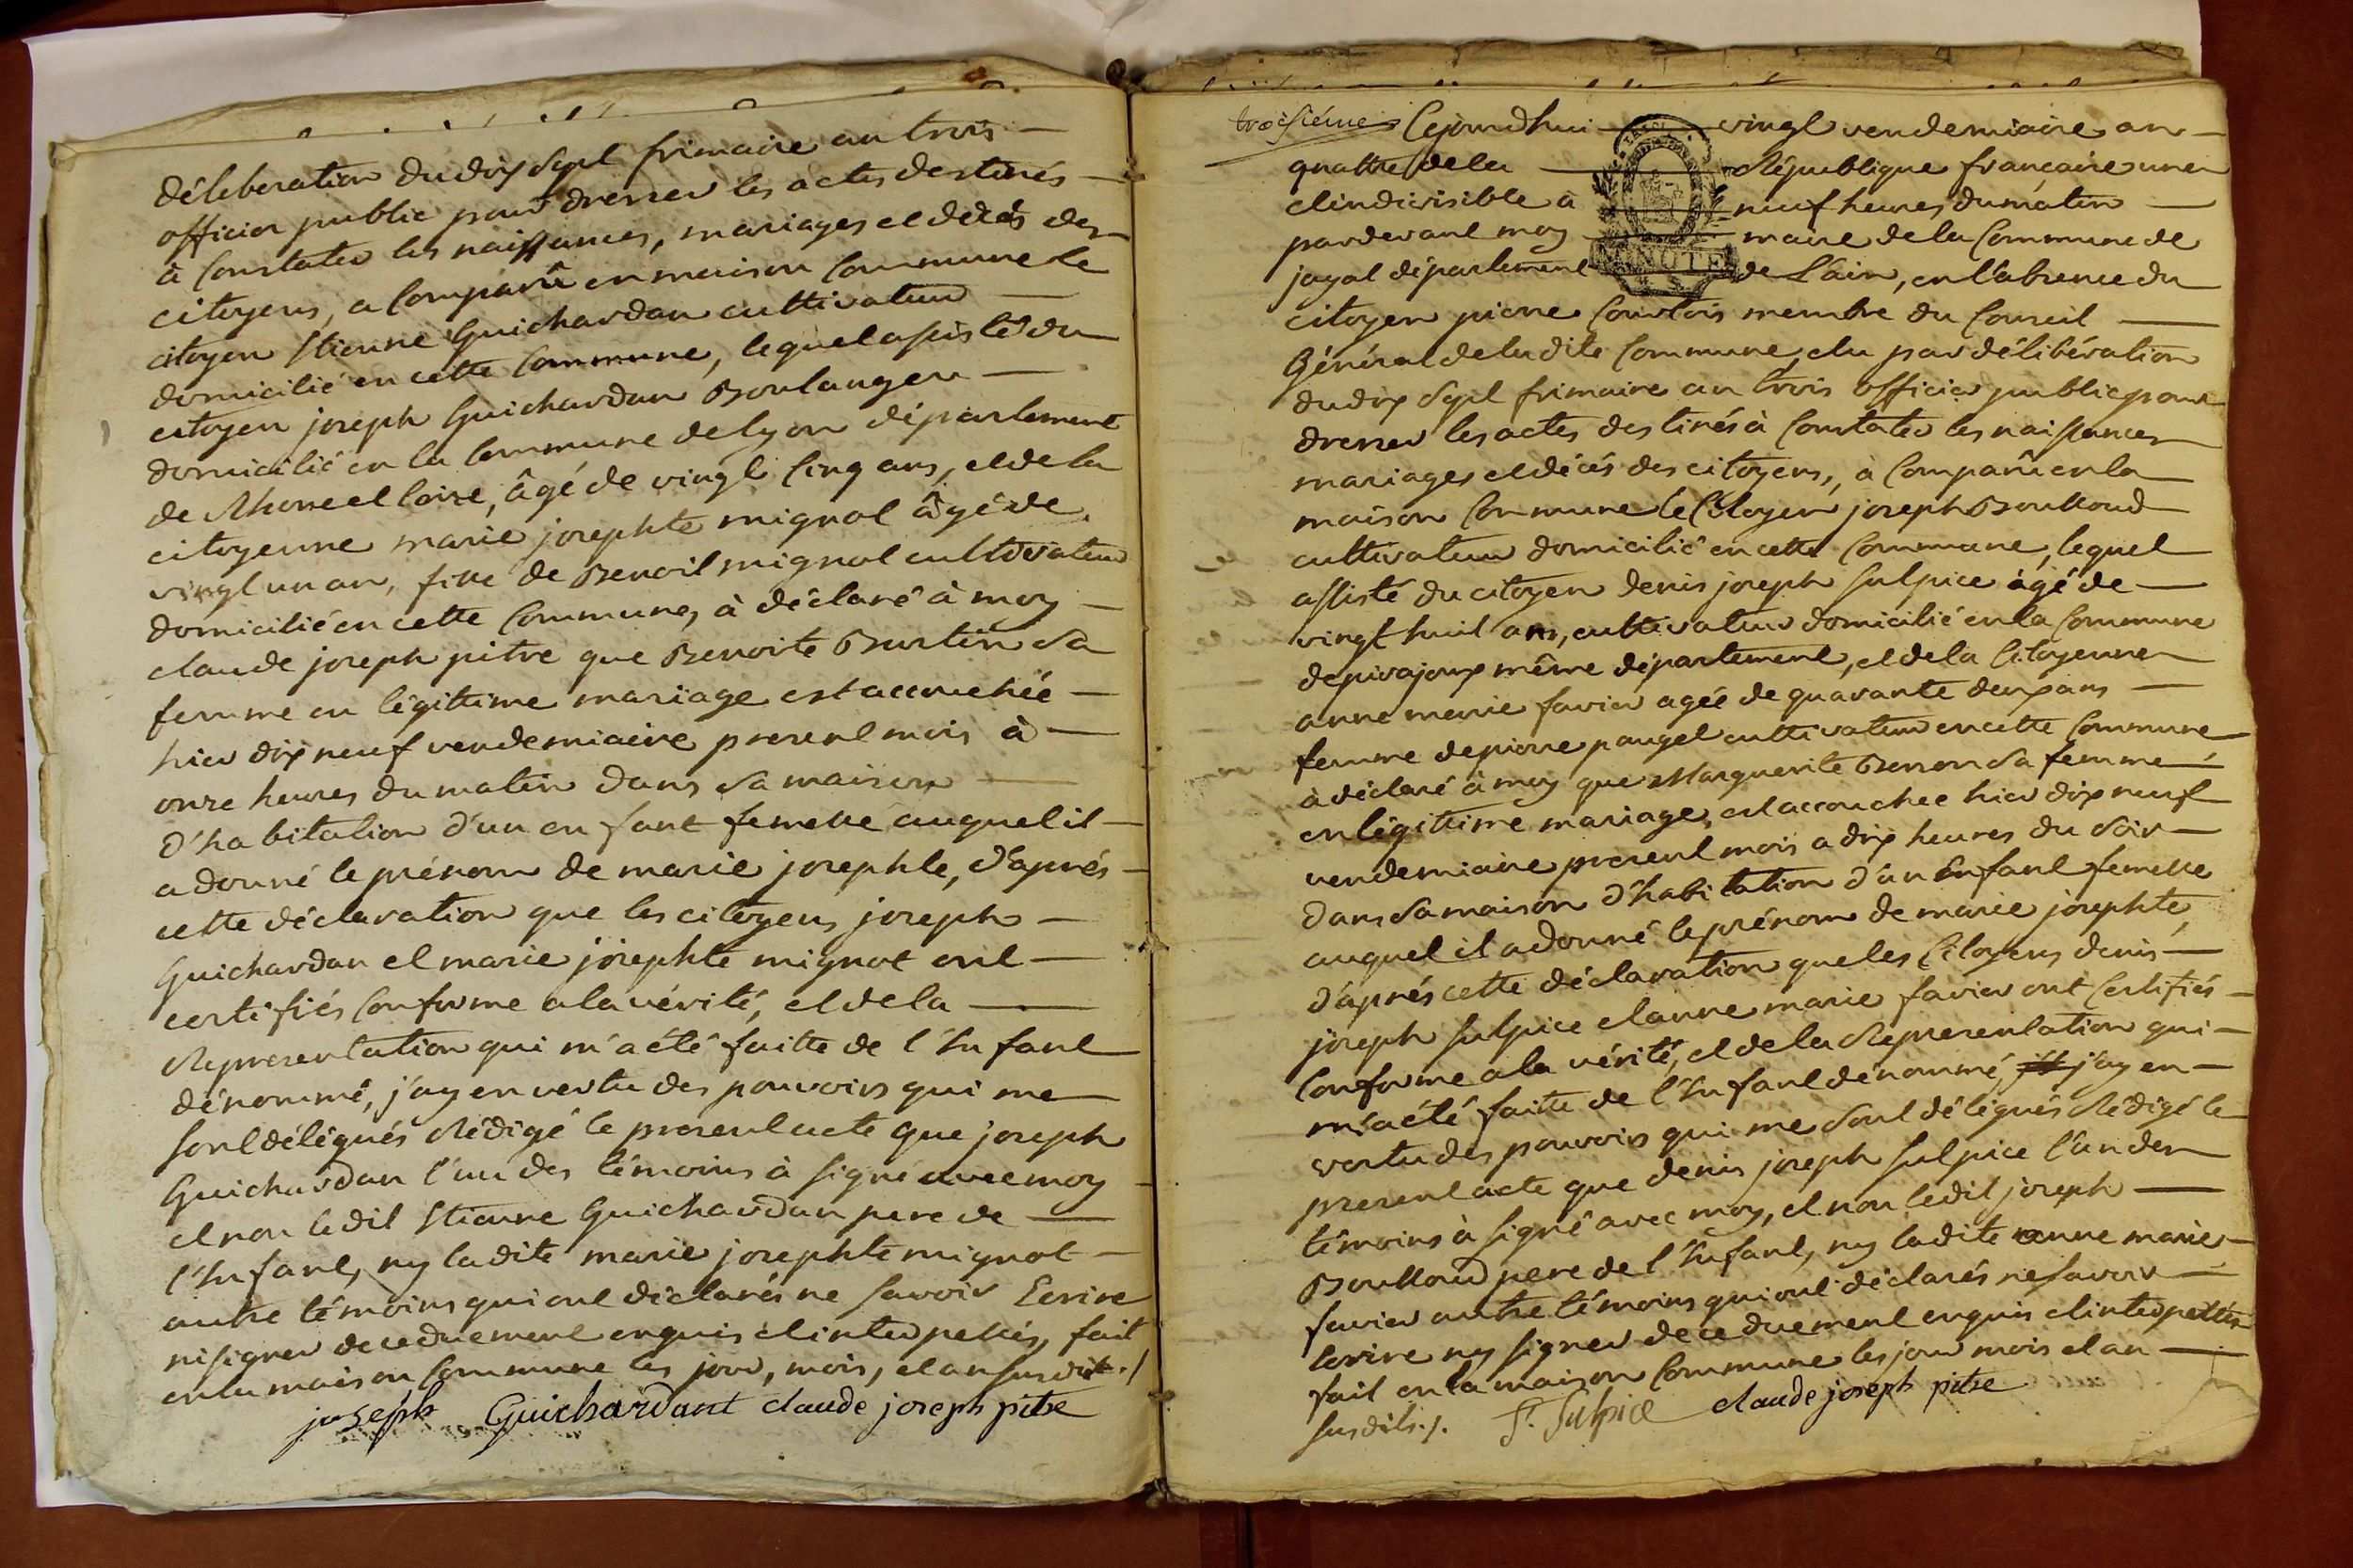 déleberation du dix Sept frimaire an trois
officier public pour dresser les actes destinés
à Constater les naissances, mariages et décés des
citoyens, a Comparû en maison Commune le
citoyen Etienne Guichardan cultivateur
domicilié en cette Commune, lequel assisté du
citoyen joseph Guichardan Boulanger
domicilié en la Commune de lyon département
de Rhone et loire, âgé de vingt Cinq ans, et de la
citoyenne marie josephte mignot âgé de
vingt un an, fille de Benoit mignot cultivateur
domicilié en cette Commune, à déclaré à moy
claude joseph pitre que Benoite Burtin Sa
femme en légittime mariage est accouchée
hier dix neuf vendemiaire present mois à
onze heures du matin dans Sa maison
d'habitation d'un enfant femelle auquel il
a donné le prénom de marie josephte, d'aprés
cette déclaration que les citoyens joseph
Guichardan et marie josephte mignot ont
certifiés Conforme a la vérité, et de la
Representation qui m'a été faitte de l'Enfant
dénommé, j'ay en vertu des pouvoirs qui me
Sont délégués Rédigé le present acte que joseph
Guichardan l'un des témoins à signé avec moy
et non ledit Etienne Guichardan pere de
l'Enfant, ny ladite marie josephte mignot
autre témoins qui ont déclarés ne Savoir Ecrire
ni signer de ce duement enquis et interpellés, fait
en la maison Commune les jour, mois, et an susdit ./
joseph Guichardant claude joseph pitre
troisiéme Cejourdhui vingt vendemiaire an
quattre de la République française une
et indivisible a neuf heures du matin
pardevant moy MINUTE maire de la Commune de
jayat département de L'ain, en l'absence du
citoyen pierre Courtois membre du Conseil
Général de ladite Commune, elu par délibération
du dix Sept frimaire an trois officier public pour
dresser les actes destinés à Constater les naissances
mariages et décés des citoyens, à Comparû en la
maison Commune le Citoyen joseph Boulloud
cultivateur domicilié en cette Commune, lequel
assisté du citoyen denis joseph Sulpice âgé de
vingt huit ans, cultivateur domicilié en la Commune
de pirajoux même département, et de la Citoyenne
anne marie favier agée de quarante deux ans
femme de pierre pauget cultivateur en cette Commune
à déclaré à moy que Marguerite Berron Sa femme
en légittime mariage, est accouchee hier dix neuf
vendemiaire present mois a dix heures du Soir
dans Sa maison d'habitation d'un Enfant femelle
auquel il a donné le prénom de marie josephte,
d'aprés cette déclaration que les Citoyens denis
joseph Sulpice et anne marie favier ont Certifiés
Conforme a la vérité, et de la Representation qui
m'a été faitte de l'Enfant dénommé, j'ay en
vertu des pouvoirs qui me Sont délégués Rédigé le
present acte que denis joseph Sulpice l'un des
témoins à signé avec moy, et non ledit joseph
Boulloud pere de l'Enfant, ny ladite anne marie
favier autre témoins qui ont déclarés ne Savoir
Ecrire ny signer de ce duement enquis et interpellés
fait en la maison Commune les jour mois et an
susdits ./. Sulpice claude joseph pitre